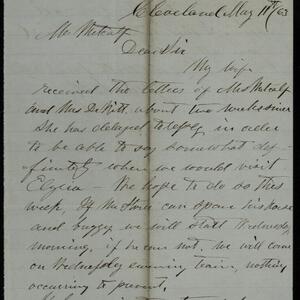 Cleveland May 11th/63
Mr Metcalf
Dear Sir
My wife
received the letters of Mrs Metcalf
and Mrs DeWitt, about two weeks since
She has delayed to reply in order
to be able to say somewhat def-
initely when we would visit
Elyria — We hope to do so this
week. If Mr Stone can spare his horse
and buggy we will start Wednesday
morning, if he can not, we will come
on Wednesday evening train, nothing
occurring to prevent.